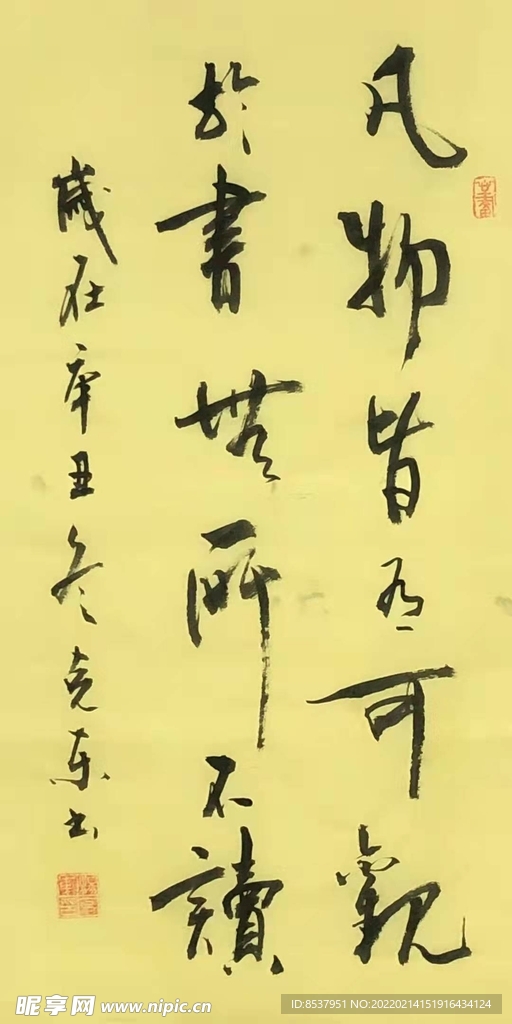 凡物皆有可觀
於書無所不讀
歲在辛丑冬克东书
昵享网 www.nipic.cn
ID:8537951 NO:20220214151916434124